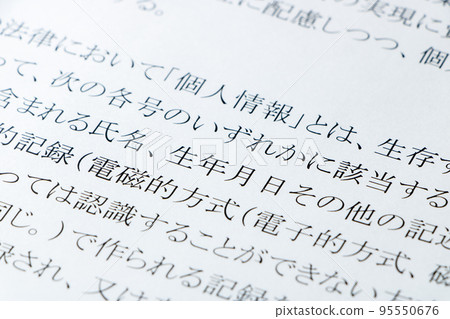 の実現に
に配慮しつつ、個
法律において「個人情報」とは、生存す
って、次の各号のいずれかに該当する
含まれる氏名、生年月日その他の記述
的記録(電磁的方式(電子的方式、磁
っては認識することができない方
同じ。)で作られる記録
録され、又は
PIXTA
95550676